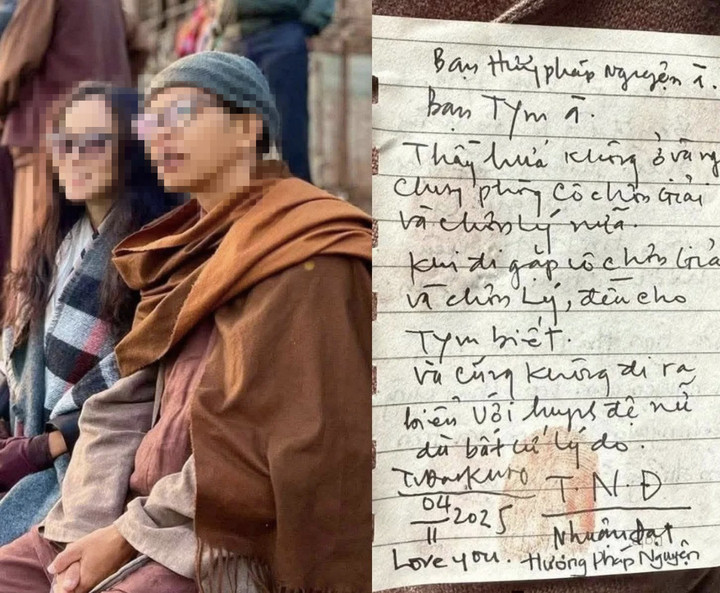 Bạn Hướng Pháp Nguyện à.
Bạn Tym à.
Thầy hứa không ở và ng
chung phòng cô chơn Giải
và chơn Lý nữa.
Khi đi gặp cô chơn Giả
và chơn Lý, đều cho
Tym biết.
Và cũng không đi ra
biển với huynh đệ nữ
dù bất cứ lý do.
04
11 2025
T.N.Đ
Nhuận đạt
Love you. Hướng Pháp Nguyện